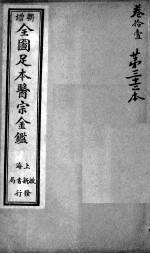 卷拾壹
第三十二本
新增
全圖足本醫宗金鑑
上海啟新書局發行